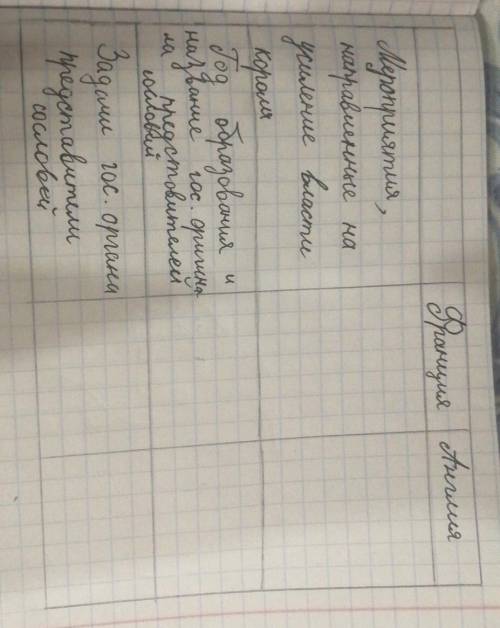 Франция Англия
Мероприятия,
направленные на
усиление власти
короля
Год образования и
название гос. органа
предстовителей
сословий
Задачи гос. органа
представители
сословей